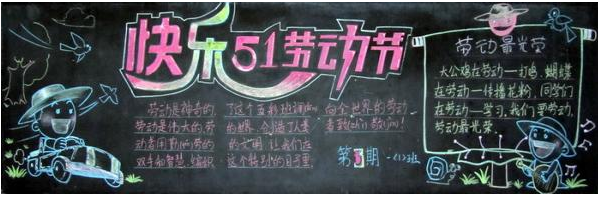 快乐51劳动节
劳动是神奇的
劳动是伟大的,劳
动者用勤劳的
双手和智慧,编织
了这个五彩斑斓
的世界,创造了人类
的文明.让我们在
这个特别的日子里
向全世界的劳动
者致以敬意!
第5期
劳动最光荣
大公鸡在劳动—打鸣,蝴蝶
在劳动—传播花粉,同学们
在劳动—学习,我们要劳动,
劳动最光荣.